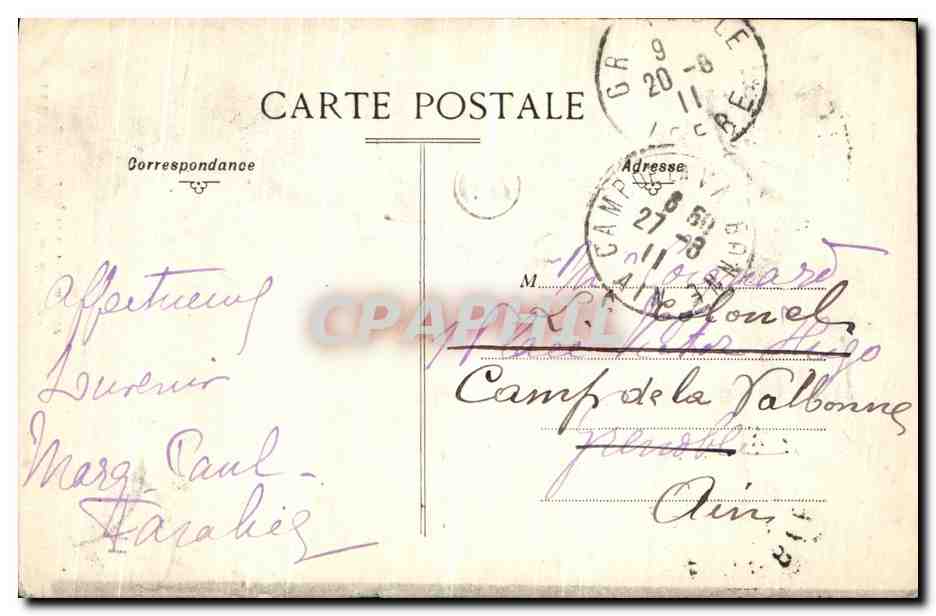 CARTE POSTALE
Correspondance
Adresse
GRENOBLE
9
20 -8
11
ISERE
CAMP DE LA VALBONNE
6 50
27 -8
11
AIN
Affectueux
Souvenir
Marg. Paul
M
Colonel
Place Victor Hugo
Camp de la Valbonne
Grenoble
Ain
CPAPHIL